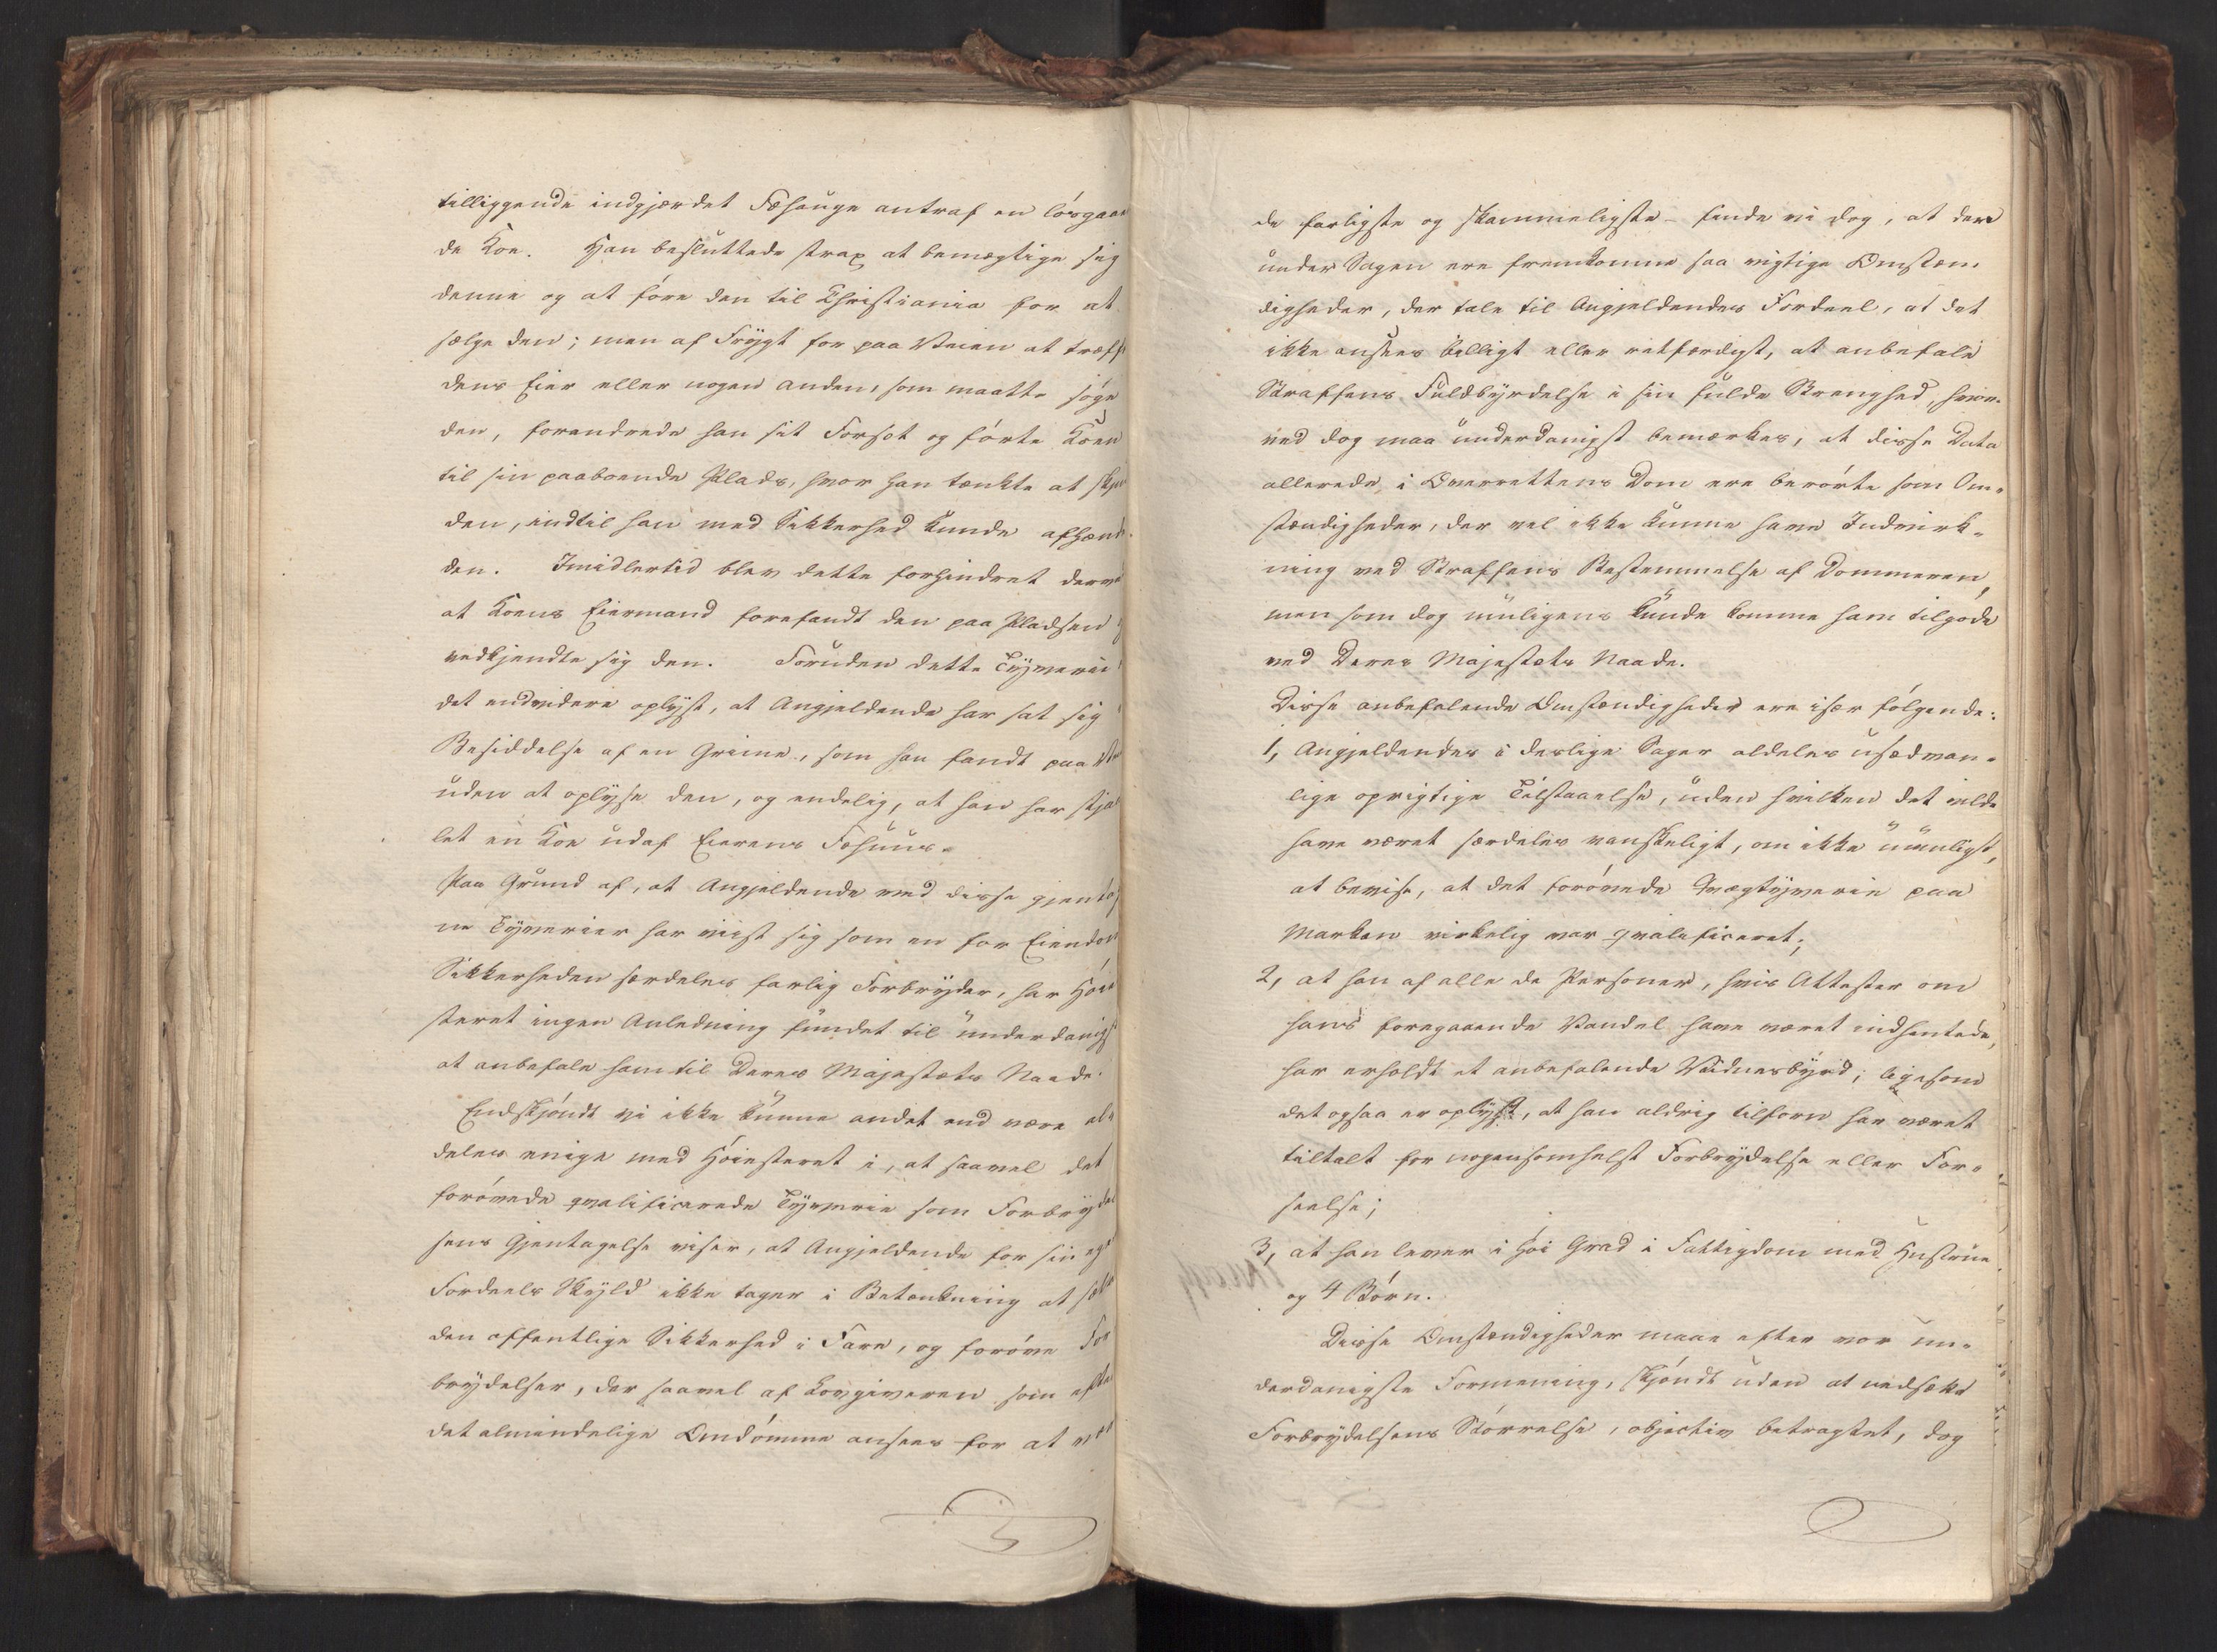 tilliggende indgjærdet Fæhauge antraf en lösgaaen
de Koe. Han besluttede strax at bemægtige sig
denne og at före den til Christiania for at
sælge den; men af Frygt for paa Veien at træffe
dens Eier eller nogen anden, som maatte söge
den, forandrede han sit Forsæt og förte Koen
til sin paaboende Plads, hvor han tænkte at skju
den, indtil han med Sikkerhed kunde afhænde
den. Imidlertid blev dette forhindret derved
at Koens Eiermand forefandt den paa Pladsen og
vedkjendte sig den. Foruden dette Tyverie
det endvidere oplyst, at Angjeldende har sat sig i
Besiddelse af en Grime, som han fandt paa Vei
uden at oplyse den, og endelig, at han har stjaa
let en Koe udaf Eierens Fæhuus.
Paa Grund af, at Angjeldende ved disse gjentag
ne Tyverier har viist sig som en for Eiendoms
Sikkerheden særdeles farlig Forbryder, har Höie
steret ingen Anledning fundet til underdanigst
at anbefale ham til Deres Majestæts Naade.
Endskjöndt vi ikke kunne andet end være al„
deles enige med Höiesteret i, at saavel det
forövede qvalificerede Tyverie som Forbrydel
sens Gjentagelse viser, at Angjeldende for sin egen
Fordeels Skyld ikke tager i Betænkning at sætte
den offentlige Sikkerhed i Fare, og foröve For
brydelser, der saavel af Lovgiveren som efter
det almindelige Omdömme ansees for at være
de farligste og skammeligste – finde vi dog, at der
under Sagen ere fremkomne saa vigtige Omstæn„
digheder, der tale til Angjeldendes Fordeel, at det
ikke ansees billigt eller retfærdigt, at anbefale
Straffens Fuldbyrdelse i sin fulde Strenghed, hvor„
ved dog maa underdanigst bemærkes, at disse Data
allerede i Overrettens Dom ere berörte som Om„
stændigheder, der vel ikke kunne have Indvirk„
ning ved Straffens Bestemmelse af Dommeren,
men som dog muligens kunde komme ham tilgode
ved Deres Majestæts Naade.
Disse anbefalende Omstændigheder ere især fölgende:
1, Angjeldendes i deslige Sager aldeles usædvan„
lige oprigtige Tilstaaelse, uden hvilken det vilde
have været særdeles vanskeligt, om ikke umuligt,
at bevise, at det forövede Qvægtyverie paa
Marken virkelig var qvalificeret;
2, at han af alle de Personer, hvis Attester om
hans foregaaende Vandel have været indhentede,
har erholdt et anbefalende Vidnesbyrd; ligesom
det ogsaa er oplyst, at han aldrig tilforn har været
tiltalt for nogensomhelst Forbrydelse eller For„
seelse;
3, at han lever i höi Grad i Fattigdom med Hustrue
og 4 Börn.
Disse Omstændigheder maae efter vor un„
derdanigste Formening, skjöndt uden at nedsætte
Forbrydelsens Störrelse, objectiv betragtet, dog